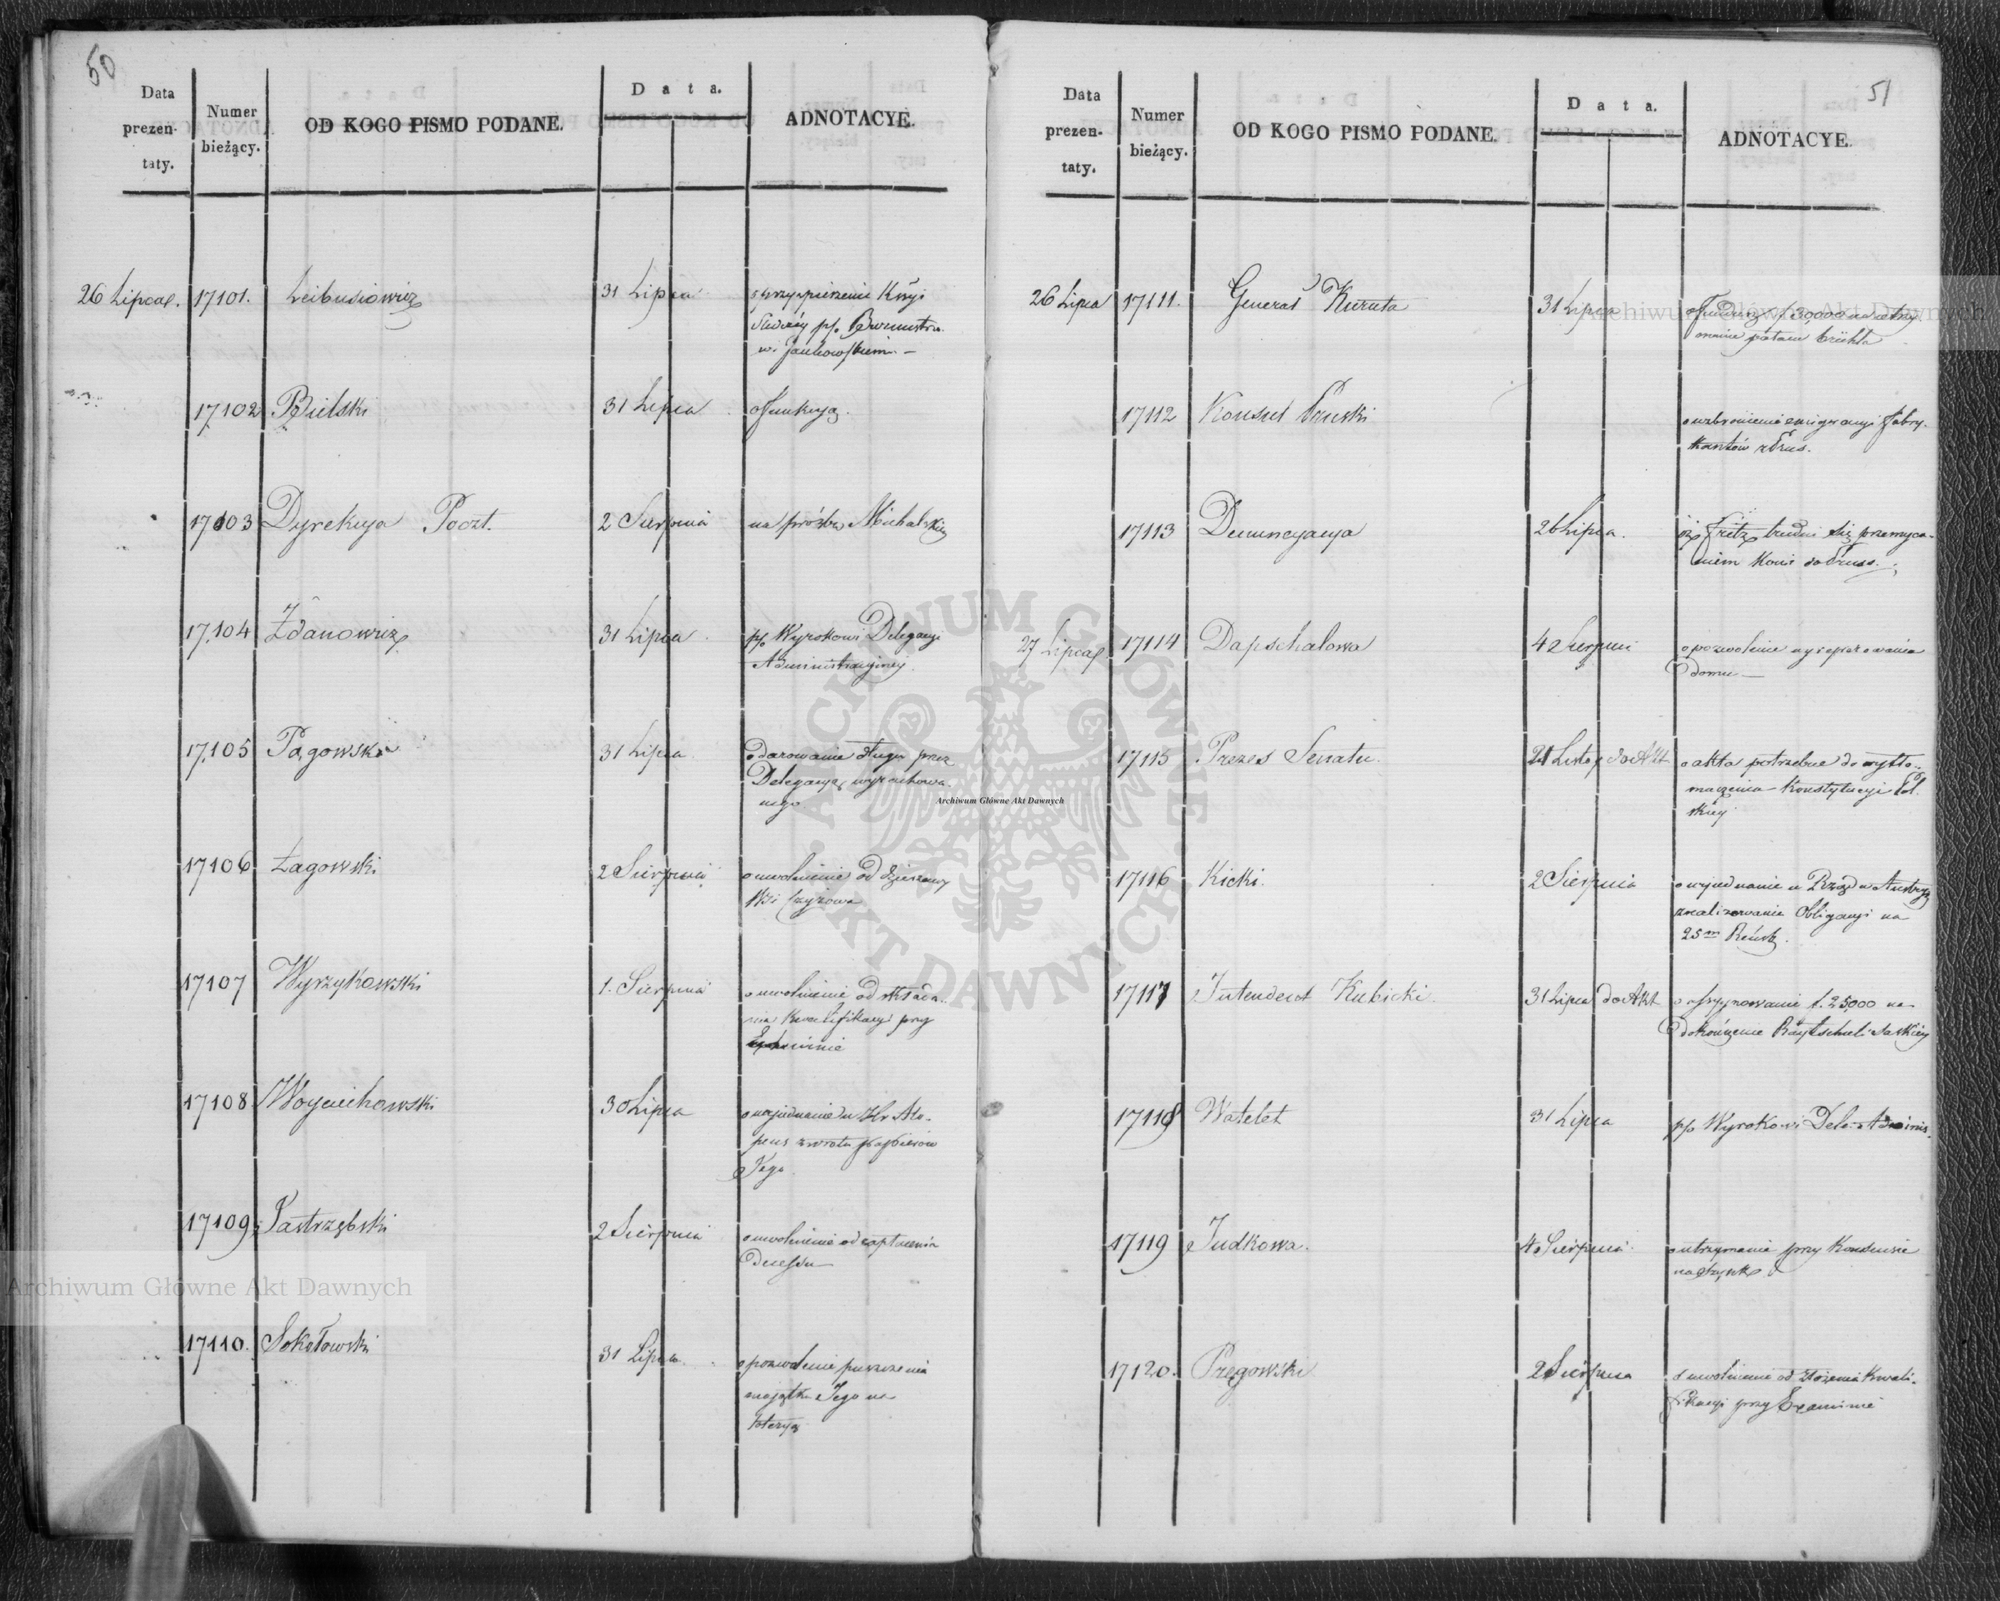 50
Data prezen- taty.
Numer bieżący.
OD KOGO PISMO PODANE.
Data.
ADNOTACYE.
26 Lipca 17101. Leibusiowicz 31 Lipca
w Jankowskiem. —
17102 Bielski 31 Lipca o funkcyą.
17103 Dyrekcya Poczt. 2 Sierpnia na prośbę Michalskiey
17104 Zdanowicz 31 Lipca p/o Wyrokowi Delegacyi
Administracyiney.
17105 Pągowska 31 Lipca o darowanie długu przez
Delegacyą wyrachowa-
nego
17106 Łagowski 2 Sierpnia o uwolnienie od dzierżawy
Wsi Czyżowa
17107 Wyrzykowski 1. Sierpnia o uwolnienie od składa-
nia kwalifikacyi przy
Examinie
17108 Woyciechowski 30 Lipca o wyiednanie u Hr Alo-
peus zwrotu papierów
Jego
17109 Jastrzębski 2 Sierpnia o uwolnienie od zapłacenia
17110. Sokołowski 31 Lipca o pozwolenie puszczenia
maiątku Jego na
loteryą
51
Data prezen- taty.
Numer bieżący.
OD KOGO PISMO PODANE.
Data.
ADNOTACYE.
26 Lipca 17111. Generał Kuruta 31 Lipca
17112 Konsul Pruski o wzbronienie emigracyi fabry-
kantów z Prus.
17113 Denuncyacya 26 Lipca. iż Fritz trudni się przemyca-
niem Koni do Pruss.
27 Lipca 17114 Dapschalowa 4 Sierpnia o pozwolenie wyreparowania
domu —
17115 Prezes Senatu. 21 Listop do Akt o akta potrzebne do wytło-
maczenia Konstytucyi Pol-
skiey
17116 Kicki. 2 Sierpnia o wyiednanie u Rządu Austry
zrealizowanie Obligacyi na
25m Reńsk.
17117 Intendent Kubicki. 31 Lipca do Akt o assygnowanie f. 25,000 na
dokończenie Raytschuli Saskiey
17118 Watelet 31 Lipca p/o Wyrokowi Dele. Adminis.
17119 Judkowa. 4 Sierpnia. o utrzymanie przy Konsensie
na szynk.
17120. Pręgowski 2 Sierpnia o uwolnienie od złożenia kwali-
fikacyi przy Examinie
Archiwum Główne Akt Dawnych
Archiwum Główne Akt Dawnych
Archiwum Główne Akt Dawnych
ARCHIWUM GŁÓWNE
AKT DAWNYCH